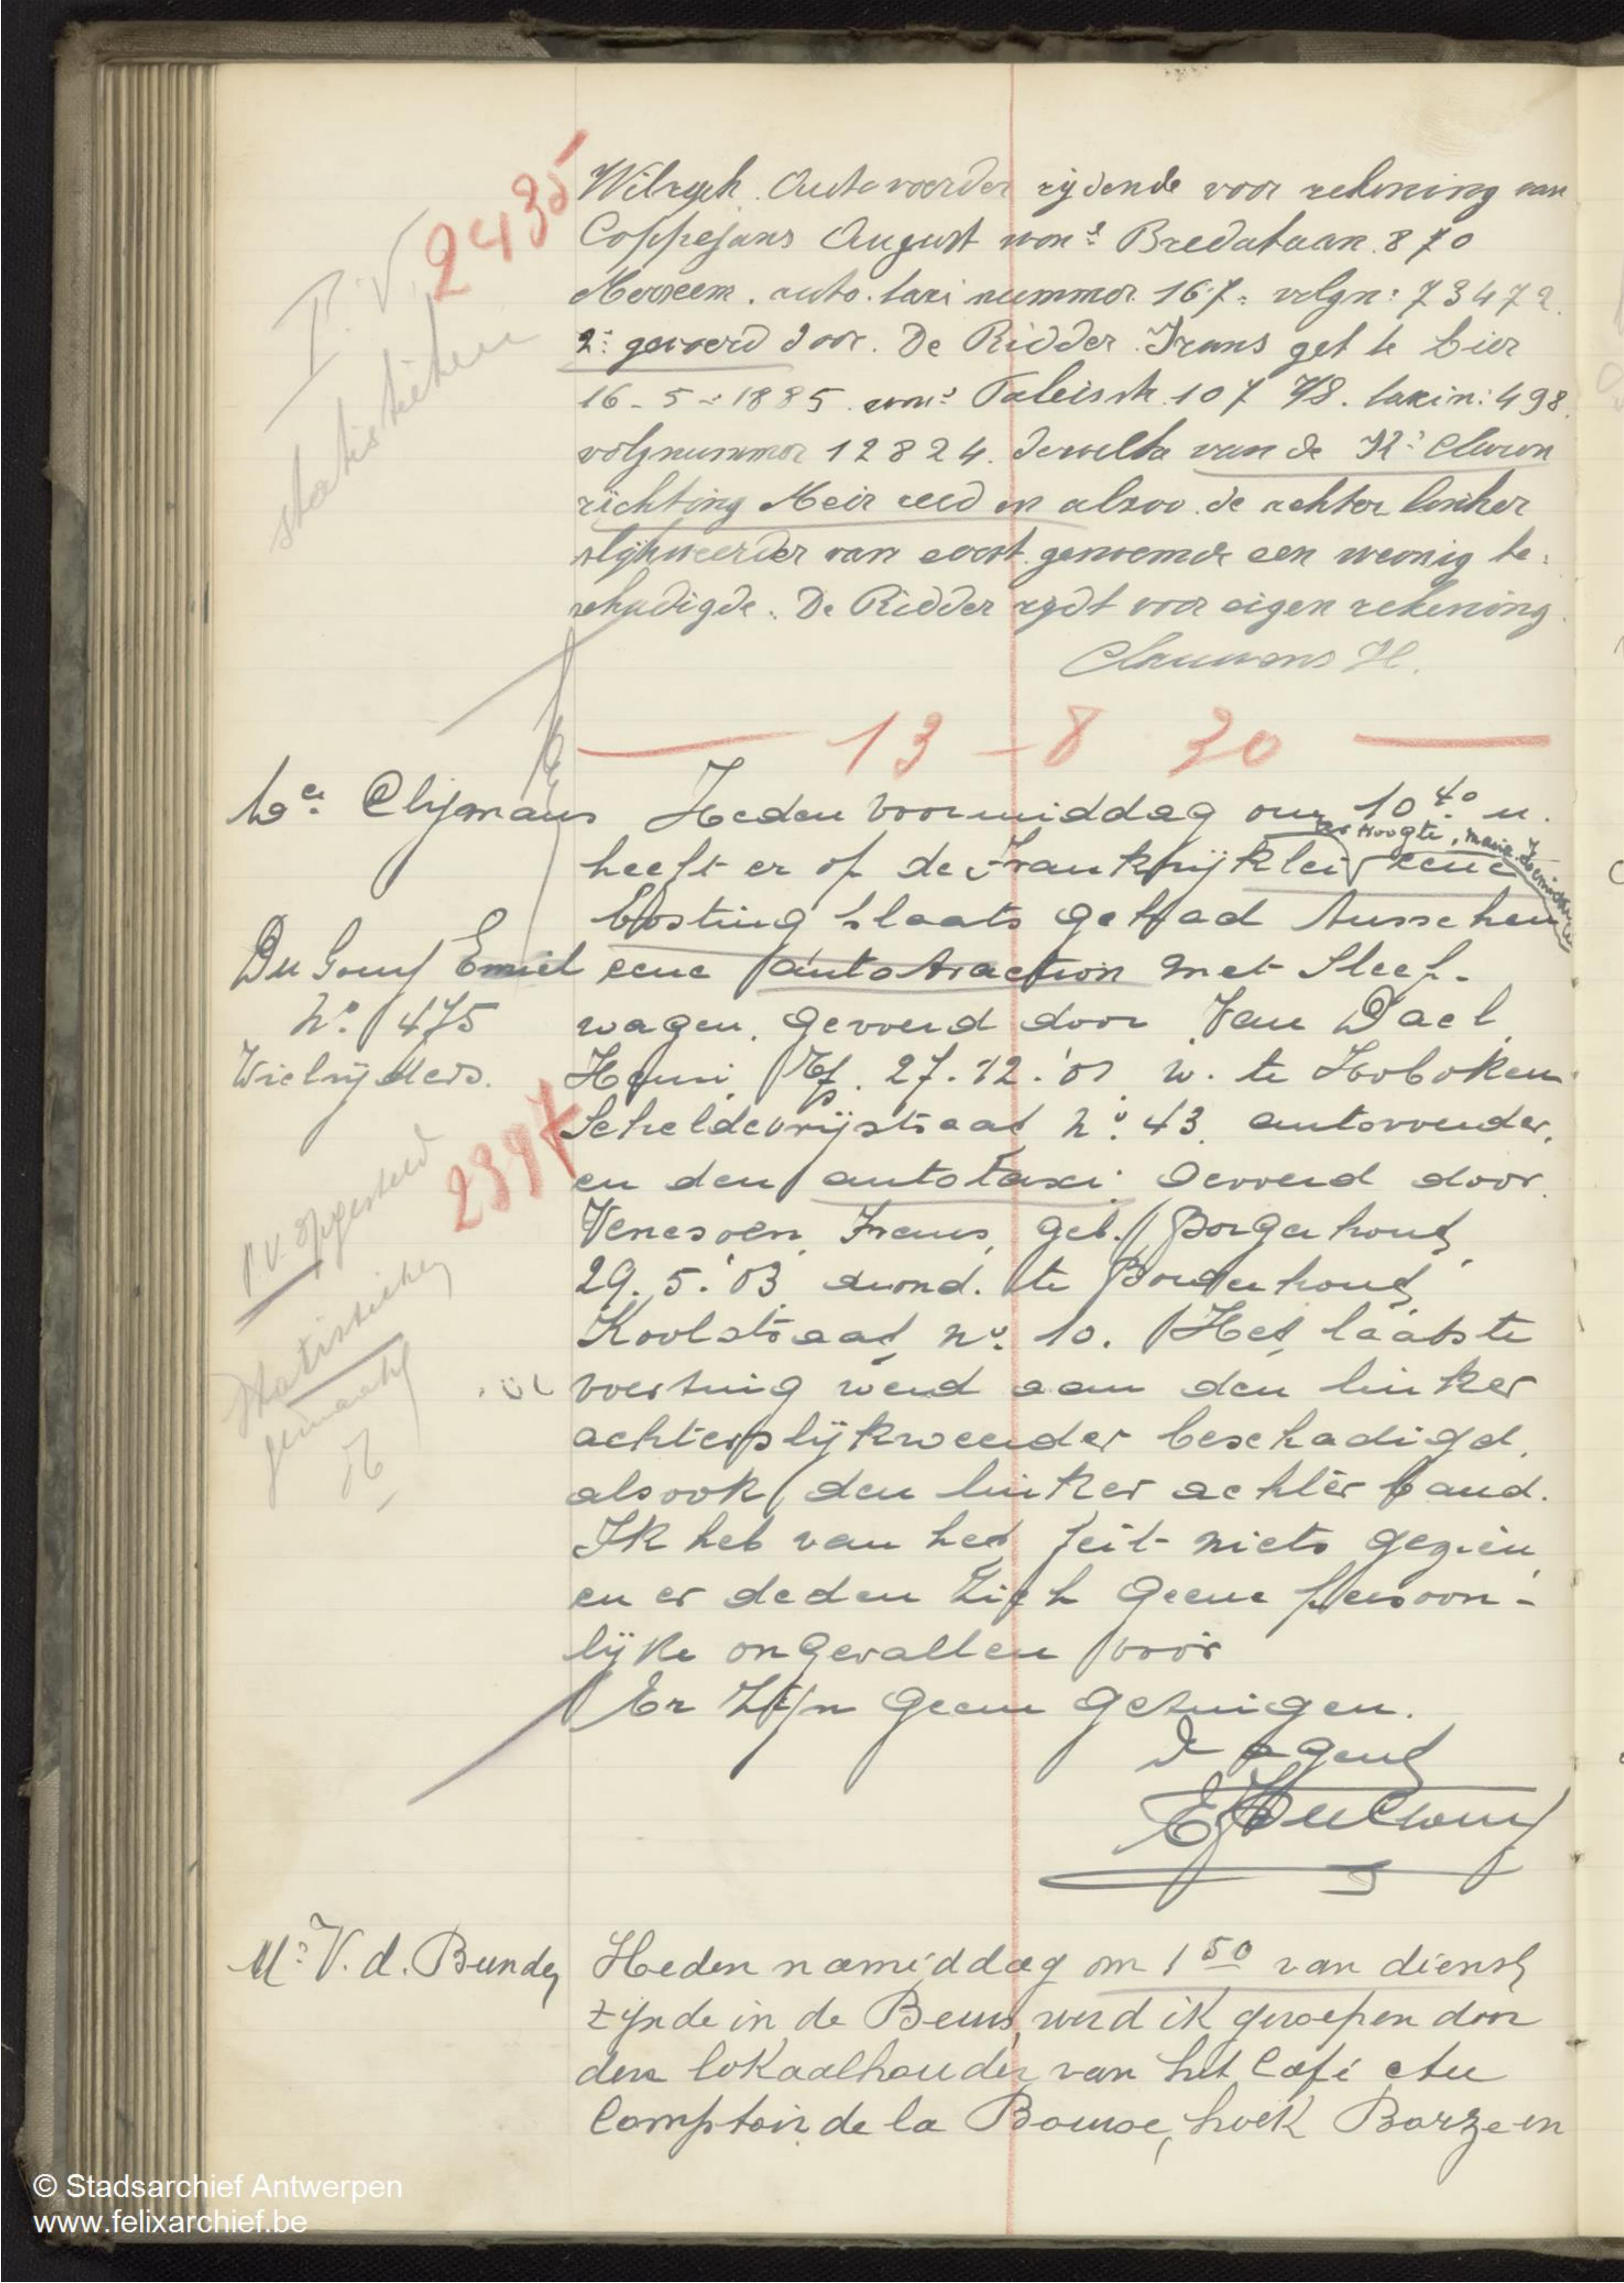 2435
P.V.
statistieken
Wilrijck. Autovoerder rijdende voor rekening van
Coppejans August won: Bredabaan. 870
Merxem. auto. taxi nummer 167. volgn: 73472.
2: gevoerd door. De Ridder Frans geb te Lier
16-5-1885. won: Paleisstr. 107 taxin: 498.
volgnummer 12824. dewelke van de K:
richting Meir reed en alzoo de achter linker
slijkweerder van eerst genoemde een weinig be-
schadigde. De Ridder rydt voor eigen rekening.
Clauwens H.
13 - 8 30
Clijmans
Heden voormiddag om 10 40 u.
ter Hoogte, Maria
heeft er op de Frankrijklei eene
botsing plaats gehad tusschen
Emiel
eene autotraction met Sleep-
N° 475
wagen, gevoerd door Van Dael
Wielrijders.
Henri, 27.12.'01 w. te Hoboken
Scheldevrijstraat n° 43. autovoerder,
2397
en den autotaxi. Gevoerd door
P.V. opgesteld
Venesoen, Frans, geb. Borgerhout
29.5.'03 woond. te Borgerhout
statistieken
gemaakt
Koolstraat n° 10. Het laatste
voertuig werd aan den linker
achterslijkweerder beschadigd,
alsook den linker achter band.
Ik heb van het feit niets gezien
en er deden zich geene persoon-
lijke ongevallen voor
Er zijn geene getuigen.
De agent
V. d. Bunder
Heden namiddag om 1 50 van dienst
zijnde in de Beurs, werd ik geroepen door
den lokaalhouder van het Café Au
Comptoir de la Bourse, hoek Borze en
© Stadsarchief Antwerpen
www.felixarchief.be